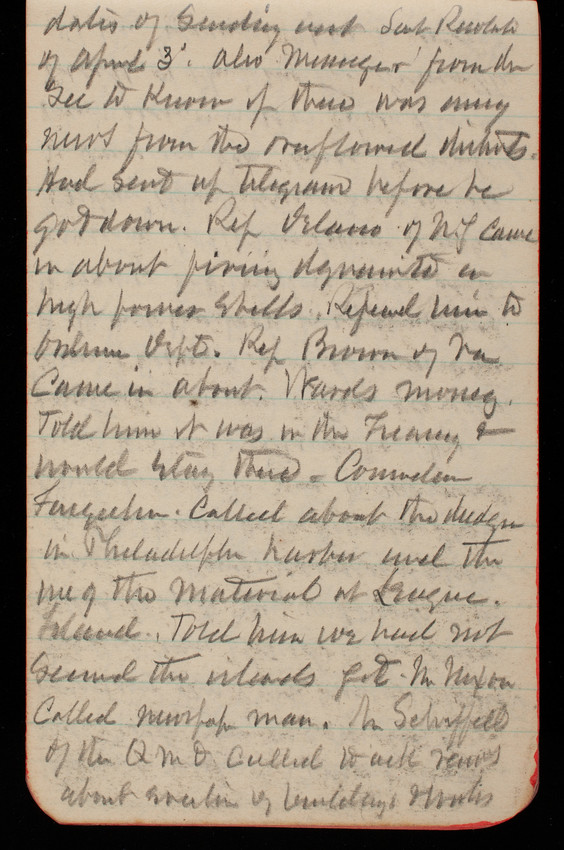 dates of sending out Sent Resolut
of April 3d. also Messenger from the
Sec to know if there was any
news from the overflowed districts.
Had sent up telegram before he
got down. Rep of NY came
in about firing dynamite in
high power shells. Referred him to
Ordnance Dept. Rep Brown of Va
Came in about Wards money.
Told him it was in the Treasy &
would stay there - Commodore
Farquhar. Called about the dredgin
in Philadelphia harbor and the
use of the material at League
Island. Told him we had not
secured the islands yet. Mr Nixon
Called newspap man. Mr
of the Q M D called to ask views
about of buildings & works